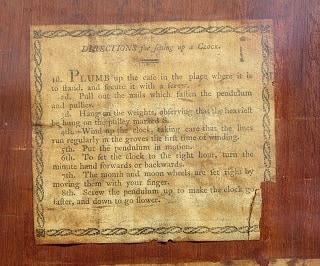 DIRECTIONS for setting up a CLOCK.
1st. PLUMB up the case in the place where it is
to stand, and secure it with a screw.
2d. Pull out the nails which fasten the pendulum
and pullies.
3d. Hang on the weights, observing that the heaviest
be hung on the pulley marked
4th. Wind up the clock, taking care that the lines
run regularly in the groves the first time of winding.
5th. Put the pendulum in motion.
6th. To set the clock to the right hour, turn the
minute hand forwards or backwards.
7th. The month and moon wheels are set right by
moving them with your finger.
8th. Screw the pendulum up to make the clock go
faster, and down to go slower.